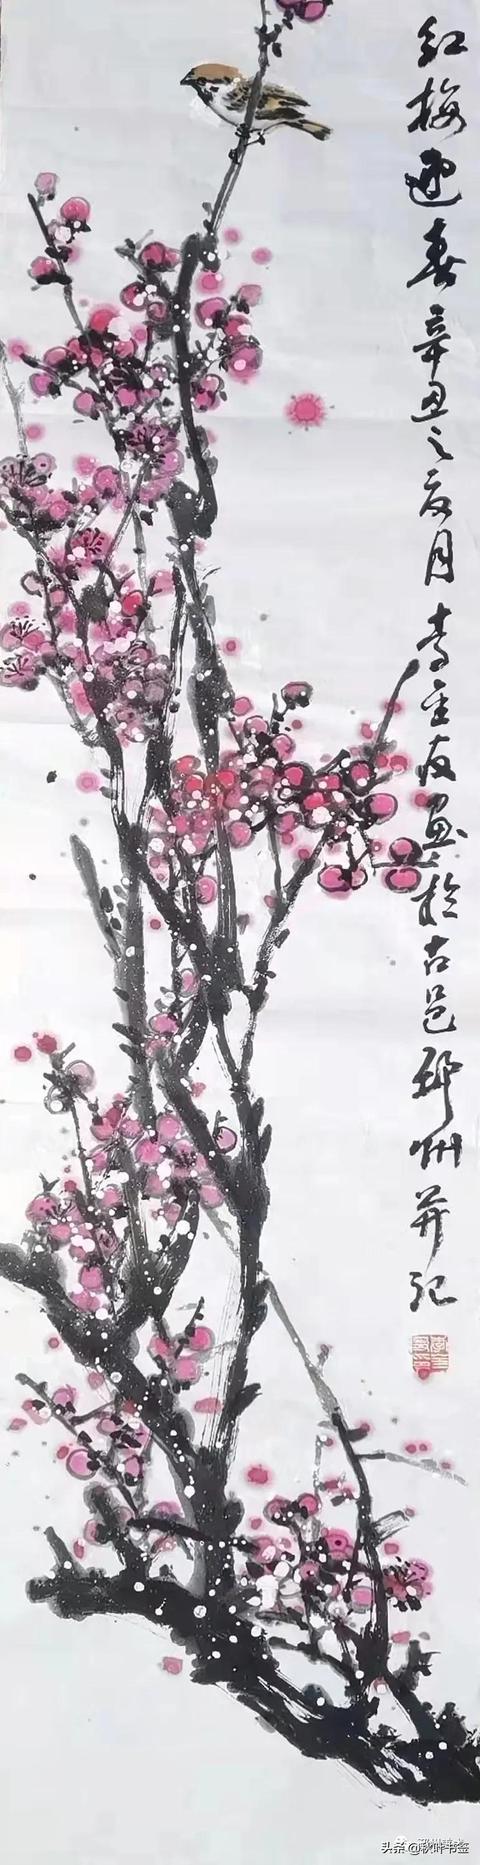 红梅迎春辛丑之夏月李全友画於古邑邓州并记
头条 @秋叶书签